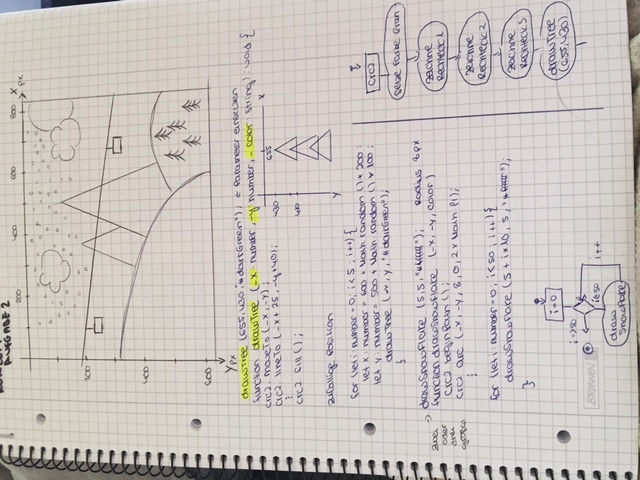 AUFGABE 2
200 400 600 800 X
px
200
400
600
Y px
drawTree (655,430,"#darkGreen"); ← Parameter einsetzen
function drawTree (_x: number, _y: number, _color: string): void {
crc2. moveTo (_x, _y);
crc2. lineTo (_x + 25, _y + 40);
:
crc2 fill ();
X
655
430
Y
zufällige Position
for (let i: number = 0; i < 5; i++) {
let x: number = 600 + Math random () * 200;
let y: number = 500 + Math random () * 100;
drawTree (_x, _y, "#darkGreen");
}
zwei
oder
drei
drawSnowflake (5,5,"#ffffff"); Radius 8px
function drawSnowflake (_x, _y, color)
crc2 beginPath ();
crc2 arc (_x, _y, 8, 0, 2 * Math PI);
:
for (let i: number = 0, i < 50; i++) {
drawSnowflake (5 + i * 10, 5, "#ffffff");
}
i = 0
i => 50
i ≤ 50
i++
BRUNNEN
draw
Snowflake
crc2
setze Farbe Grün
zeichne
Rechteck 1
zeichne
Rechteck 2
zeichne
Rechteck 3
drawTree
(655,430)